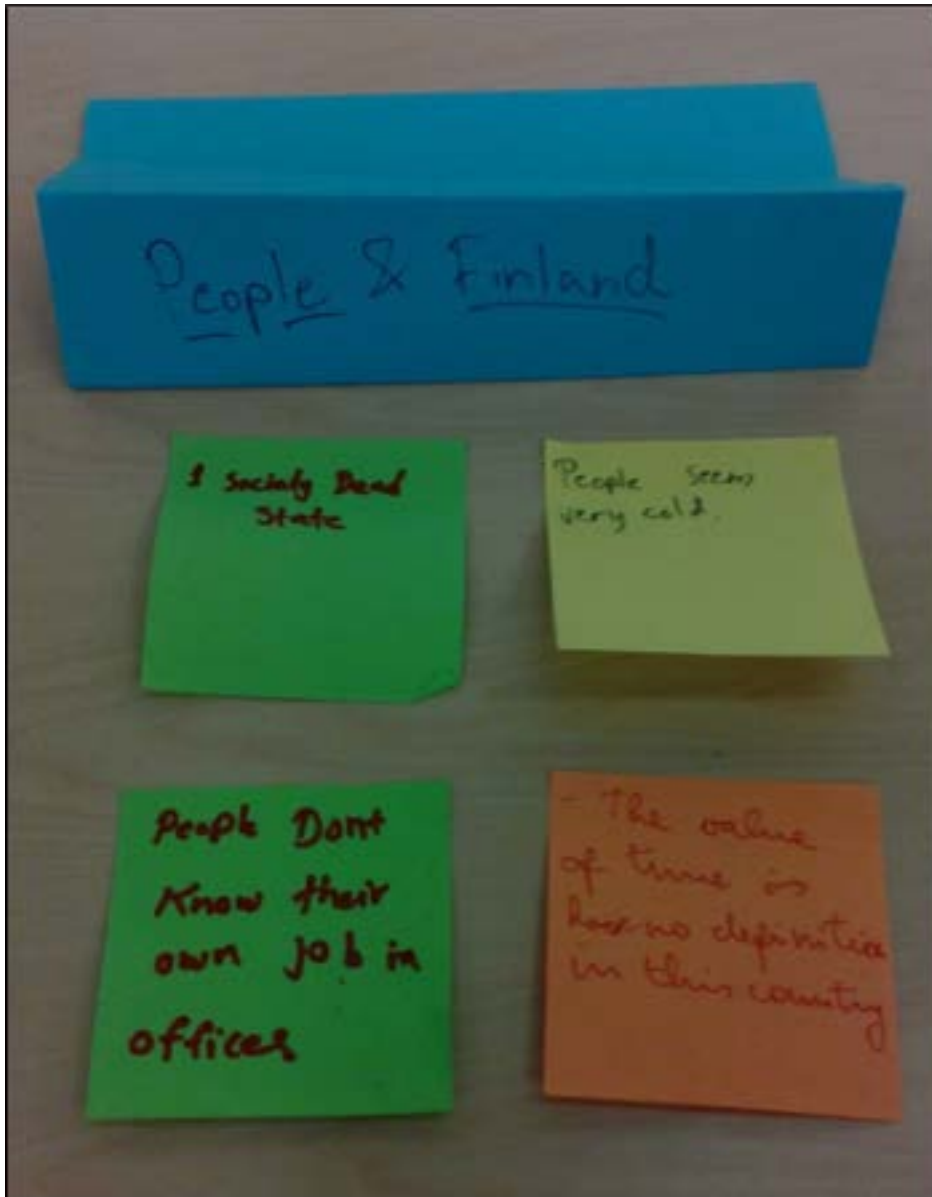 People & Finland
1 Socialy Dead
State
People seem
very cold.
People Dont
Know their
own job in
offices
- The value
of time is
has no definition
in this country